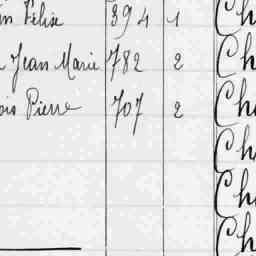 Félix 894 1 Ch
Jean Marie 782 2 Ch
Pierre 707 2 Ch
Ch
Ch
Ch